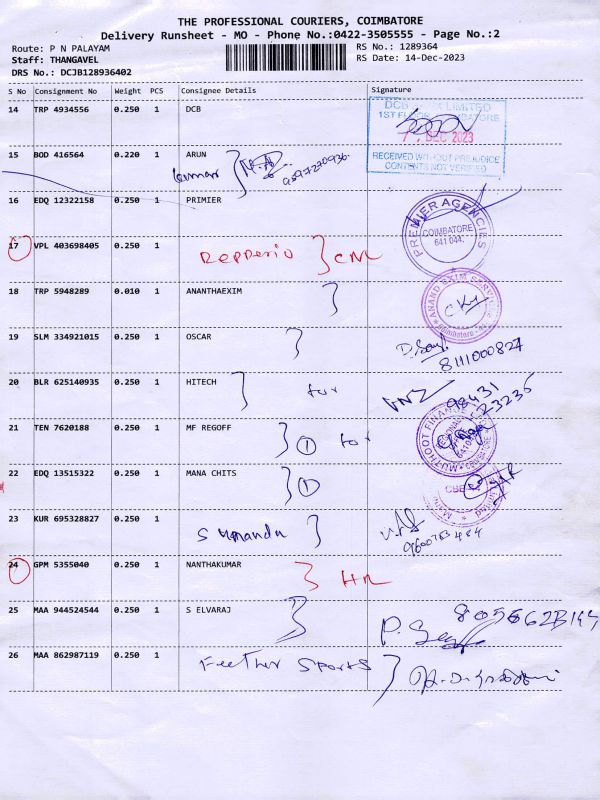 THE PROFESSIONAL COURIERS, COIMBATORE
Delivery Runsheet - MO - Phone No.:0422-3505555 - Page No.:2
Route: P N PALAYAM
RS No.: 1289364
Staff: THANGAVEL
RS Date: 14-Dec-2023
DRS No.: DCJB128936402
S No Consignment No Weight PCS Consignee Details Signature
14 TRP 4934556 0.250 1 DCB
DCB LIMITED
1ST FLOOR
DEC 2023
RECEIVED WITHOUT PREJUDICE
CONTENTS NOT VERIFIED
15 BOD 416564 0.220 1 ARUN
kumar
16 EDQ 12322158 0.250 1 PRIMIER
PREMIER AGENCIES
COIMBATORE
641 044.
17 VPL 403698405 0.250 1
18 TRP 5948289 0.010 1 ANANTHAEXIM
ANAND EXIM
19 SLM 334921015 0.250 1 OSCAR
8111000827
20 BLR 625140935 0.250 1 HITECH for
98431
23235
21 TEN 7620188 0.250 1 MF REGOFF 1 for
MUTHOOT FINANCE
22 EDQ 13515322 0.250 1 MANA CHITS 1
23 KUR 695328827 0.250 1
24 GPM 5355040 0.250 1 NANTHAKUMAR
25 MAA 944524544 0.250 1 S ELVARAJ
26 MAA 862987119 0.250 1 Feether Sports